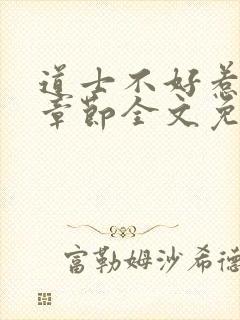 道士不好惹
章節全文免
富勒姆沙希德